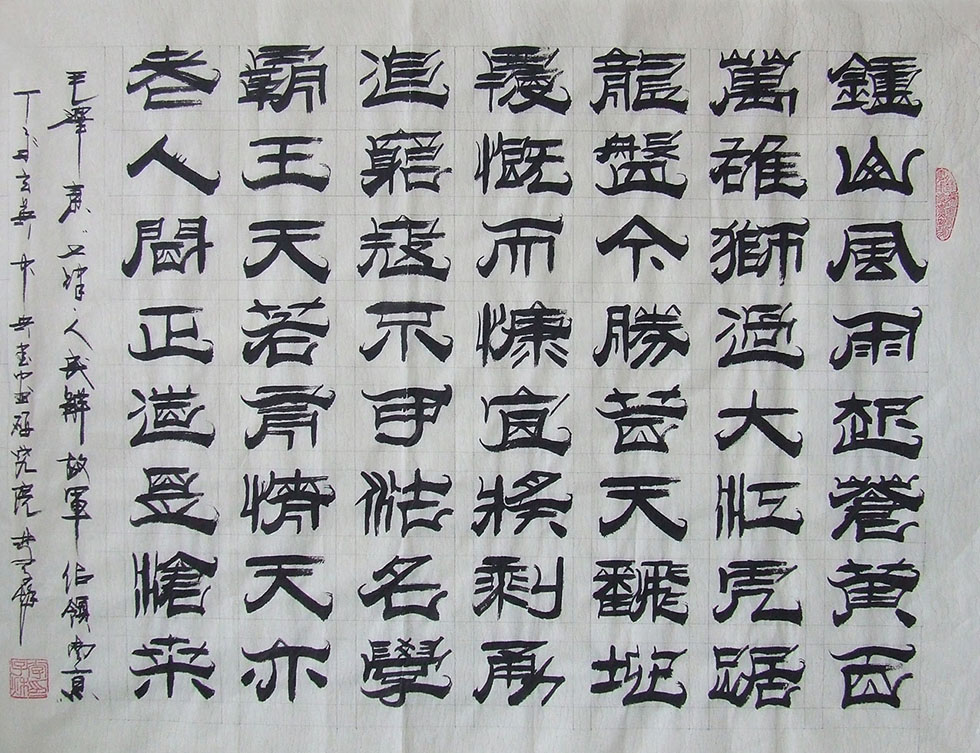 鍾山風雨起蒼黃百
萬雄獅過大江虎踞
龍盤今勝昔天飜地
覆慨而慷宜將剩勇
追窮寇不可沽名學
霸王天若有情天亦
老人間正道是滄桑
毛澤東七律人民解放軍佔領南京
丁亥 中央書畫研究院